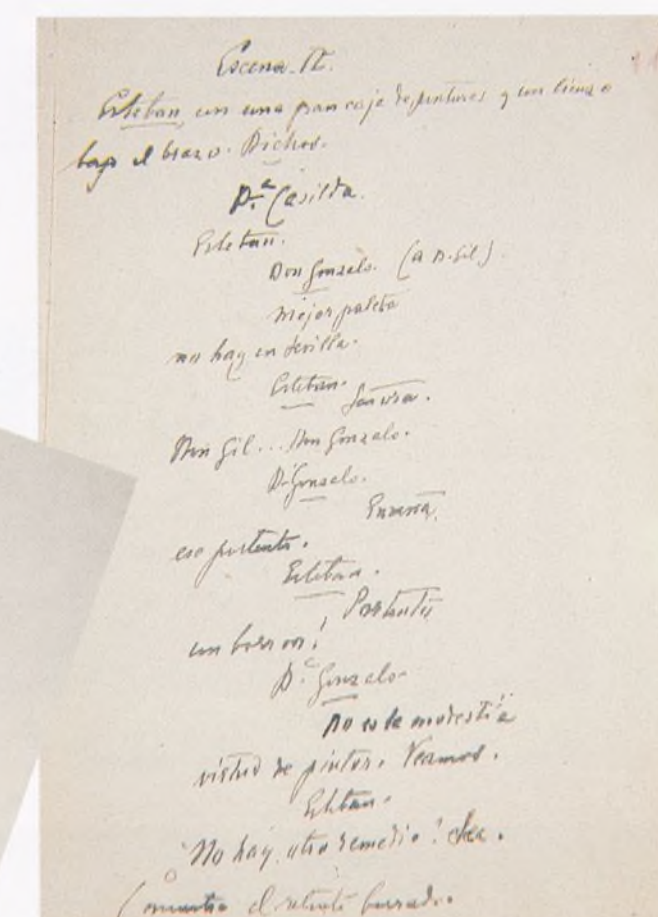 Escena IX.
Esteban, con una gran caja de pinturas y un lienzo
bajo el brazo. Dichos.
D.ª Casilda.
Esteban.
Don Gonzalo. (a D. Gil).
Mejor paleta
no hay en Sevilla.
Esteban.
Señora.
Don Gil... Don Gonzalo.
D. Gonzalo.
Enseña
ese portento.
Esteban.
Portento
un borrón!
D. Gonzalo.
No es la modestia
virtud de pintor. Veamos.
Esteban.
¿No hay otro remedio? Sea.
(muestra el retrato borrado.